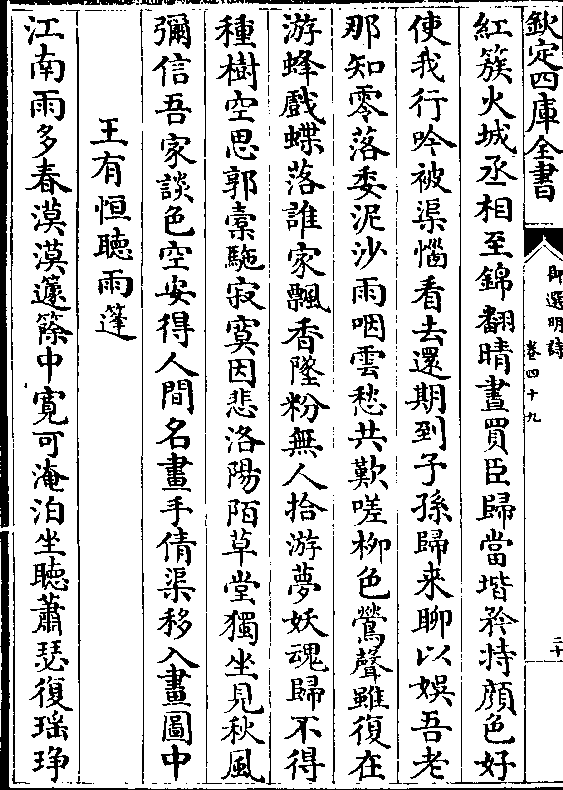 欽定四庫全書
御選明詩
卷四十九
二十
紅簇火城丞相至錦翻晴晝買臣歸當堦矜持顔色好
使我行吟被渠惱看去還期到子孫歸來聊以娛吾老
那知零落委泥沙雨咽雲愁共歎嗟柳色鶯聲雖復在
游蜂戲蝶落誰家飄香墜粉無人拾游夢妖魂歸不得
種樹空思郭橐駞寂寞因悲洛陽陌草堂獨坐見秋風
彌信吾家談色空安得人間名畫手倩渠移入畫圖中
王有恒聽雨篷
江南雨多春漠漠籧篨中寛可淹泊坐聽蕭瑟復瑶琤